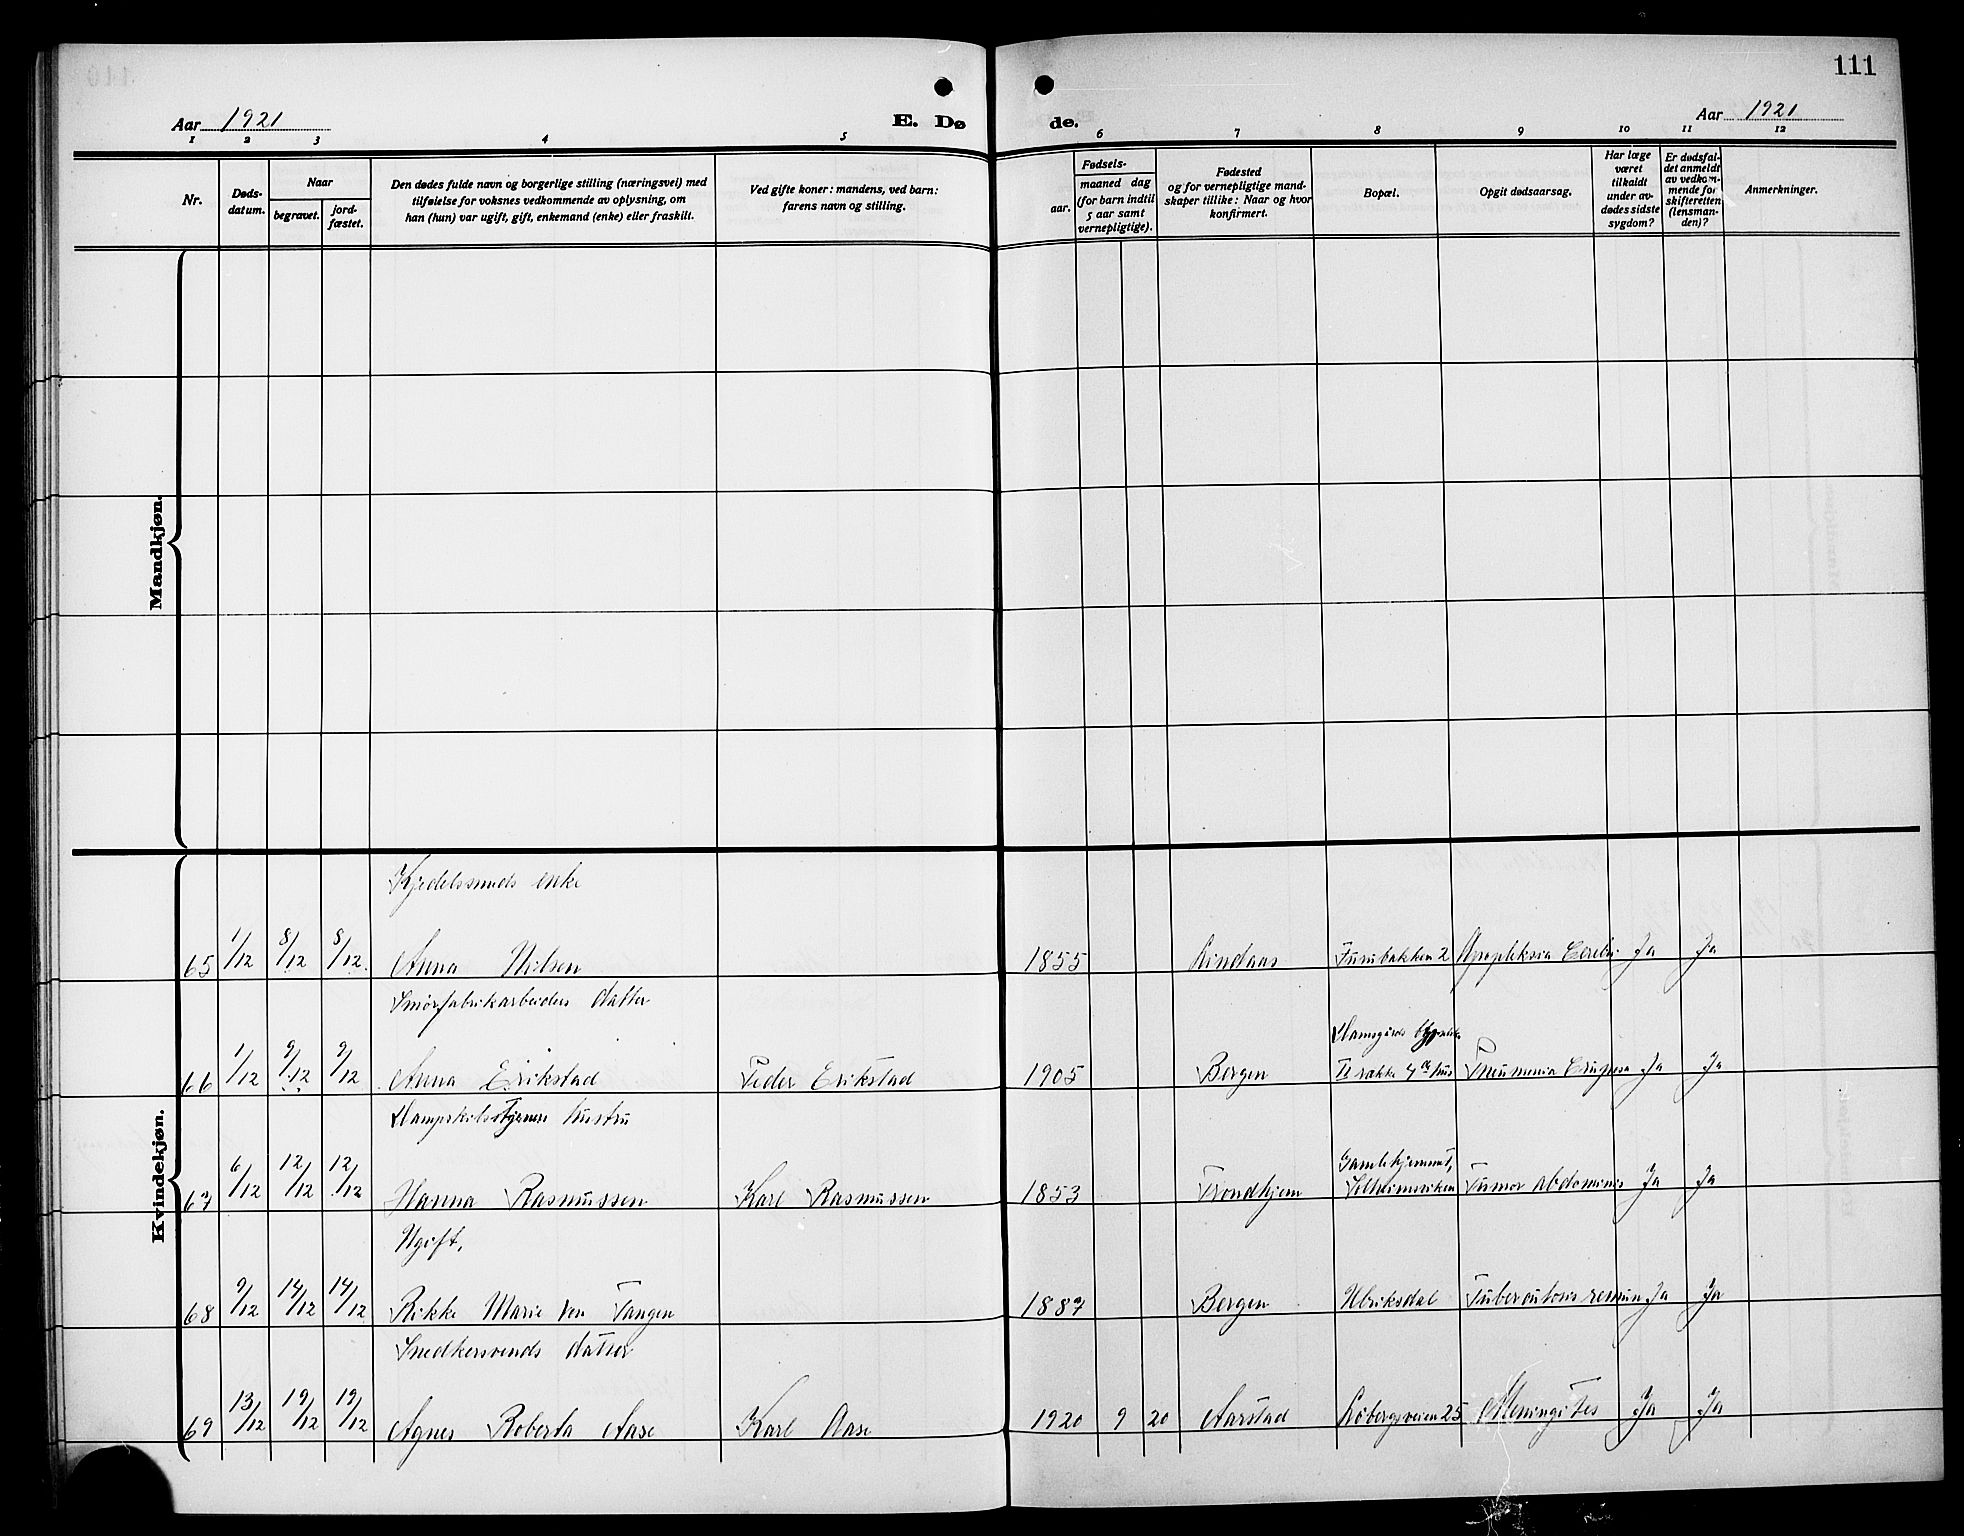 111
Aar 1921
E. Dø
de.
Aar 1921
1 2 3 4 5 6 7 8 9 10 11 12
Nr.
Døds-
datum.
Naar
begravet.
jord-
fæstet.
Den dødes fulde navn og borgerlige stilling (næringsvei) med
tilføielse for voksnes vedkommende av oplysning, om
han (hun) var ugift, gift, enkemand (enke) eller fraskilt.
Ved gifte koner: mandens, ved barn:
farens navn og stilling.
Fødsels-
aar.
maaned dag
(for barn indtil
5 aar samt
vernepligtige).
Fødested
og for vernepligtige mand-
skaper tillike: Naar og hvor
konfirmert.
Bopæl.
Opgit dødsaarsag.
Har læge
været
tilkaldt
under av-
dødes sidste
sygdom?
Er dødsfal-
det anmeldt
av vedkom-
mende for
skifteretten
(lensman-
den)?
Anmerkninger.
Mandkjøn.
Kvindekjøn.
Kjedelssmeds enke
65 1/12 8/12 8/12. Anna Nilsen 1855 Lindaas Furubakken 2 Apopleksia Cerebri Ja Ja
Smørfabrikarbeiders datter
66 1/12 9/12 9/12 Anna Erikstad Peder Erikstad 1905 Bergen II række 4de hus Pneumonia Ja Ja
hustru
67 6/12 12/12 12/12 Hanna Rasmussen Karl Rasmussen 1853 Trondhjem Gamlehjemmet, Solheimsviken Tumor Abdominis Ja Ja
Ugift,
68 9/12 14/12 14/12 Rikke Marie von Tangen 1887 Bergen Ulriksdal Ja Ja
Snedkersvends datter
69 13/12 19/12 19/12 Agnes Roberta Aase Karl Aase 1920 9 20 Aarstad Løbergsveien 25 Meningites Ja Ja